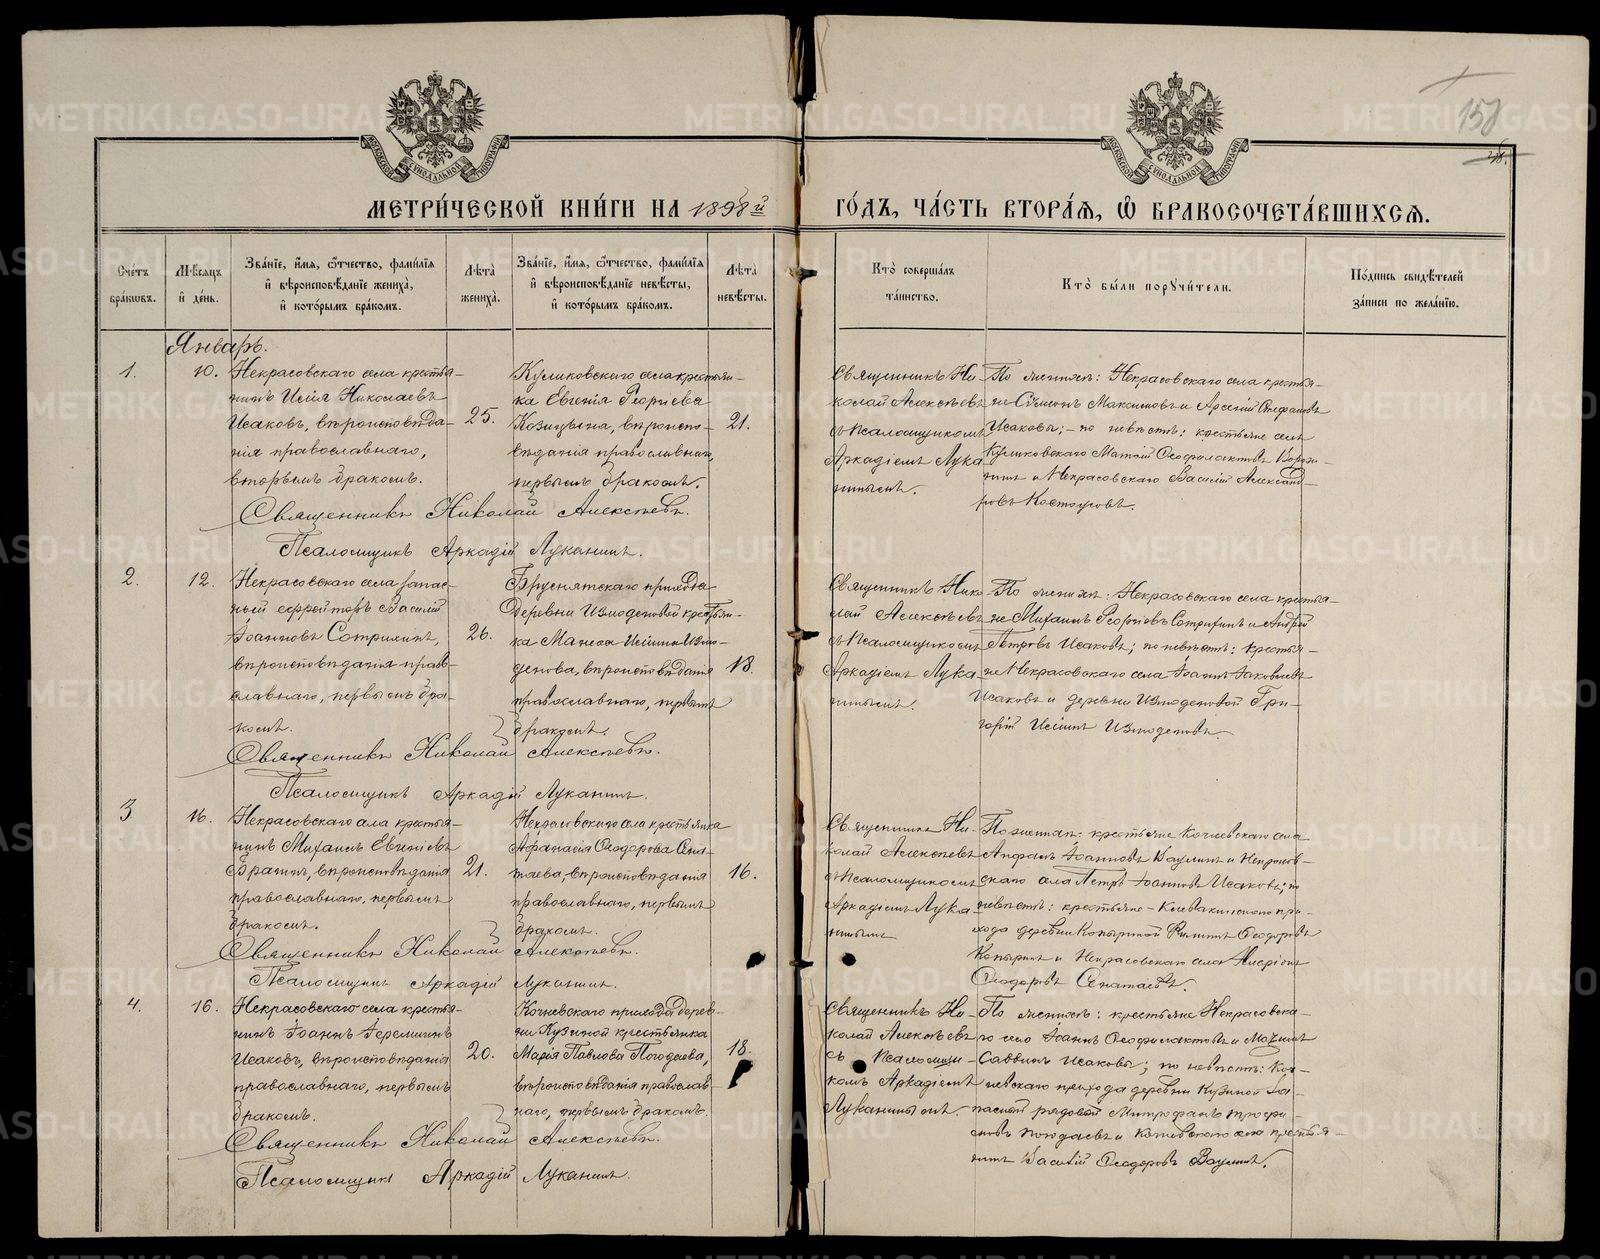 158
МОСКОВСКОЙ СУНОДАЛЬНОЙ ТИПОГРАФІИ
МОСКОВСКОЙ СУНОДАЛЬНОЙ ТИПОГРАФІИ
МЕТРИ́ЧЕСКОЙ КНИ́ГИ НА 1898й ГО́ДЪ, ЧА́СТЬ ВТОРА́Я, Ѡ БРАКОСОЧЕТА́ВШИХСЯ.
Сче́тъ бра́кѡвъ.
Мѣ́сяцъ и́ де́нь.
Зва́нїе, и́мя, ѻ́тчество, фами́лїя и́ вѣроисповѣ́данїе жениха̀, и́ кото́рымъ бра́комъ.
Лѣ́та жениха̀.
Зва́нїе, и́мя, ѻ́тчество, фами́лїя и́ вѣроисповѣ́данїе невѣ́сты, и́ кото́рымъ бра́комъ.
Лѣ́та невѣ́сты.
Кто̀ соверша́лъ та́инство.
Кто̀ бы́ли порꙋчи́тели.
По́дпись свидѣ́телей за́писи по жела́нїю.
Январь.
1.
10.
Некрасовскаго села крестья-
нинъ Илія Николаевъ
Исаковъ, вѣроисповѣда-
нія православнаго,
вторымъ бракомъ.
25.
Куликовскаго села крестьян-
ка Евгенія Георгіева
Козицына, вѣроиспо-
вѣданія православнаго,
первымъ бракомъ.
21.
Священникъ Ни-
колай Алексѣевъ
съ псаломщикомъ
Аркадіемъ Лука-
нинымъ.
По женихѣ: Некрасовскаго села крестья-
не Симеонъ Максимовъ и Арсеній Стефановъ
Исаковы; - по невѣстѣ: крестьяне села
Куликовскаго Матѳій Ѳеофилактовъ
и Некрасовскаго Василій Александ-
ровъ Костоусовъ.
Священникъ Николай Алексѣевъ.
Псаломщикъ Аркадій Луканинъ.
2.
12.
Некрасовскаго села запас-
ный ефрейторъ Василій
Іоанновъ Сотрихинъ,
вѣроисповѣданія право-
славнаго, первымъ бра-
комъ.
26.
Бруснятскаго прихода
деревни Измоденовой крестьян-
ка Измо-
денова, вѣроисповѣданія
православнаго, первымъ
бракомъ.
18.
Священникъ Нико-
лай Алексѣевъ
съ псаломщикомъ
Аркадіемъ Лука-
нинымъ.
По женихѣ: Некрасовскаго села крестья-
не Михаилъ Георгіевъ Сотрихинъ и Андрей
Петровъ Исаковъ; по невѣстѣ: крестья-
не Некрасовскаго села Іоаннъ Іаковлевъ
Исаковъ и деревни Измоденовой Гри-
горій Измоденовъ.
Священникъ Николай Алексѣевъ.
Псаломщикъ Аркадій Луканинъ.
3
16.
Некрасовскаго села крестья-
нинъ Михаилъ Евгеніевъ
вѣроисповѣданія
православнаго, первымъ
бракомъ.
21.
Некрасовскаго села крестьянка
Афанасія Ѳеодорова Сена-
таева, вѣроисповѣданія
православнаго, первымъ
бракомъ.
16.
Священникъ Ни-
колай Алексѣевъ
съ псаломщикомъ
Аркадіемъ Лука-
нинымъ
По женихѣ: крестьяне Кочневскаго села
Іоанновъ Ваулинъ и Некрасов-
скаго села Петръ Іоанновъ Исаковъ; по
невѣстѣ: крестьяне - при-
хода деревни Копыриной Филиппъ Ѳеодоровъ
Копыринъ и Некрасовскаго села
Ѳеодоровъ Сенатаевъ.
Священникъ Николай Алексѣевъ.
Псаломщикъ Аркадій Луканинъ.
4.
16.
Некрасовскаго села крестья-
нинъ Іоаннъ Іереміинъ
Исаковъ, вѣроисповѣданія
православнаго, первымъ
бракомъ.
20.
Кочневскаго прихода дерев-
ни Кузиной крестьянка
Марія Павлова Погодаева,
вѣроисповѣданія православ-
наго, первымъ бракомъ.
18.
Священникъ Ни-
колай Алексѣевъ
съ псаломщи-
комъ Аркадіемъ
Луканинымъ.
По женихѣ: крестьяне Некрасовска-
го села Іоаннъ Ѳеофилактовъ и
Саввинъ Исаковы; по невѣстѣ: Коч-
невскаго прихода деревни Кузиной за-
пасный рядовой Митрофанъ Трофи-
мовъ Погодаевъ и Кочневскаго села крестья-
нинъ Василій Ѳеодоровъ Ваулинъ.
Священникъ Николай Алексѣевъ.
Псаломщикъ Аркадій Луканинъ.
METRIKI.GASO-URAL.RU